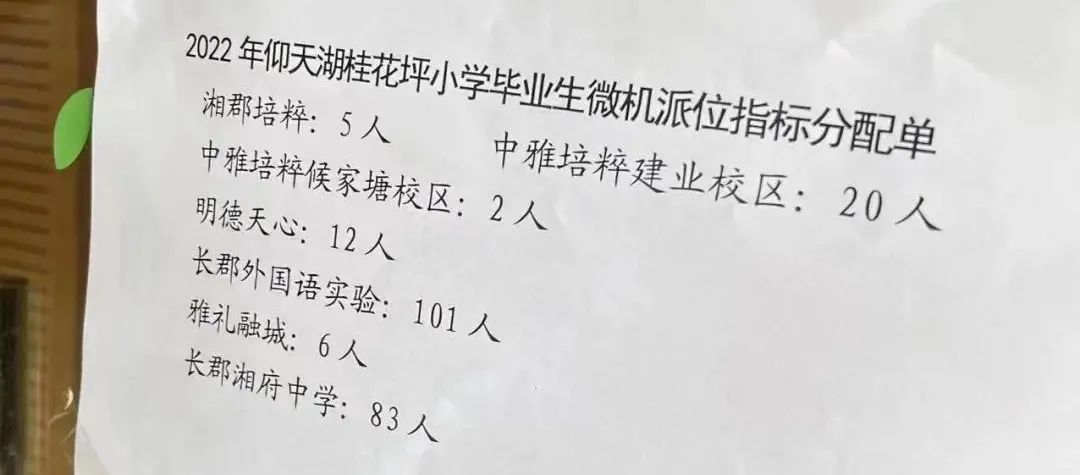 2022年仰天湖桂花坪小学毕业生微机派位指标分配单
湘郡培粹：5人
中雅培粹建业校区：20人
中雅培粹候家塘校区：2人
明德天心：12人
长郡外国语实验：101人
雅礼融城：6人
长郡湘府中学：83人